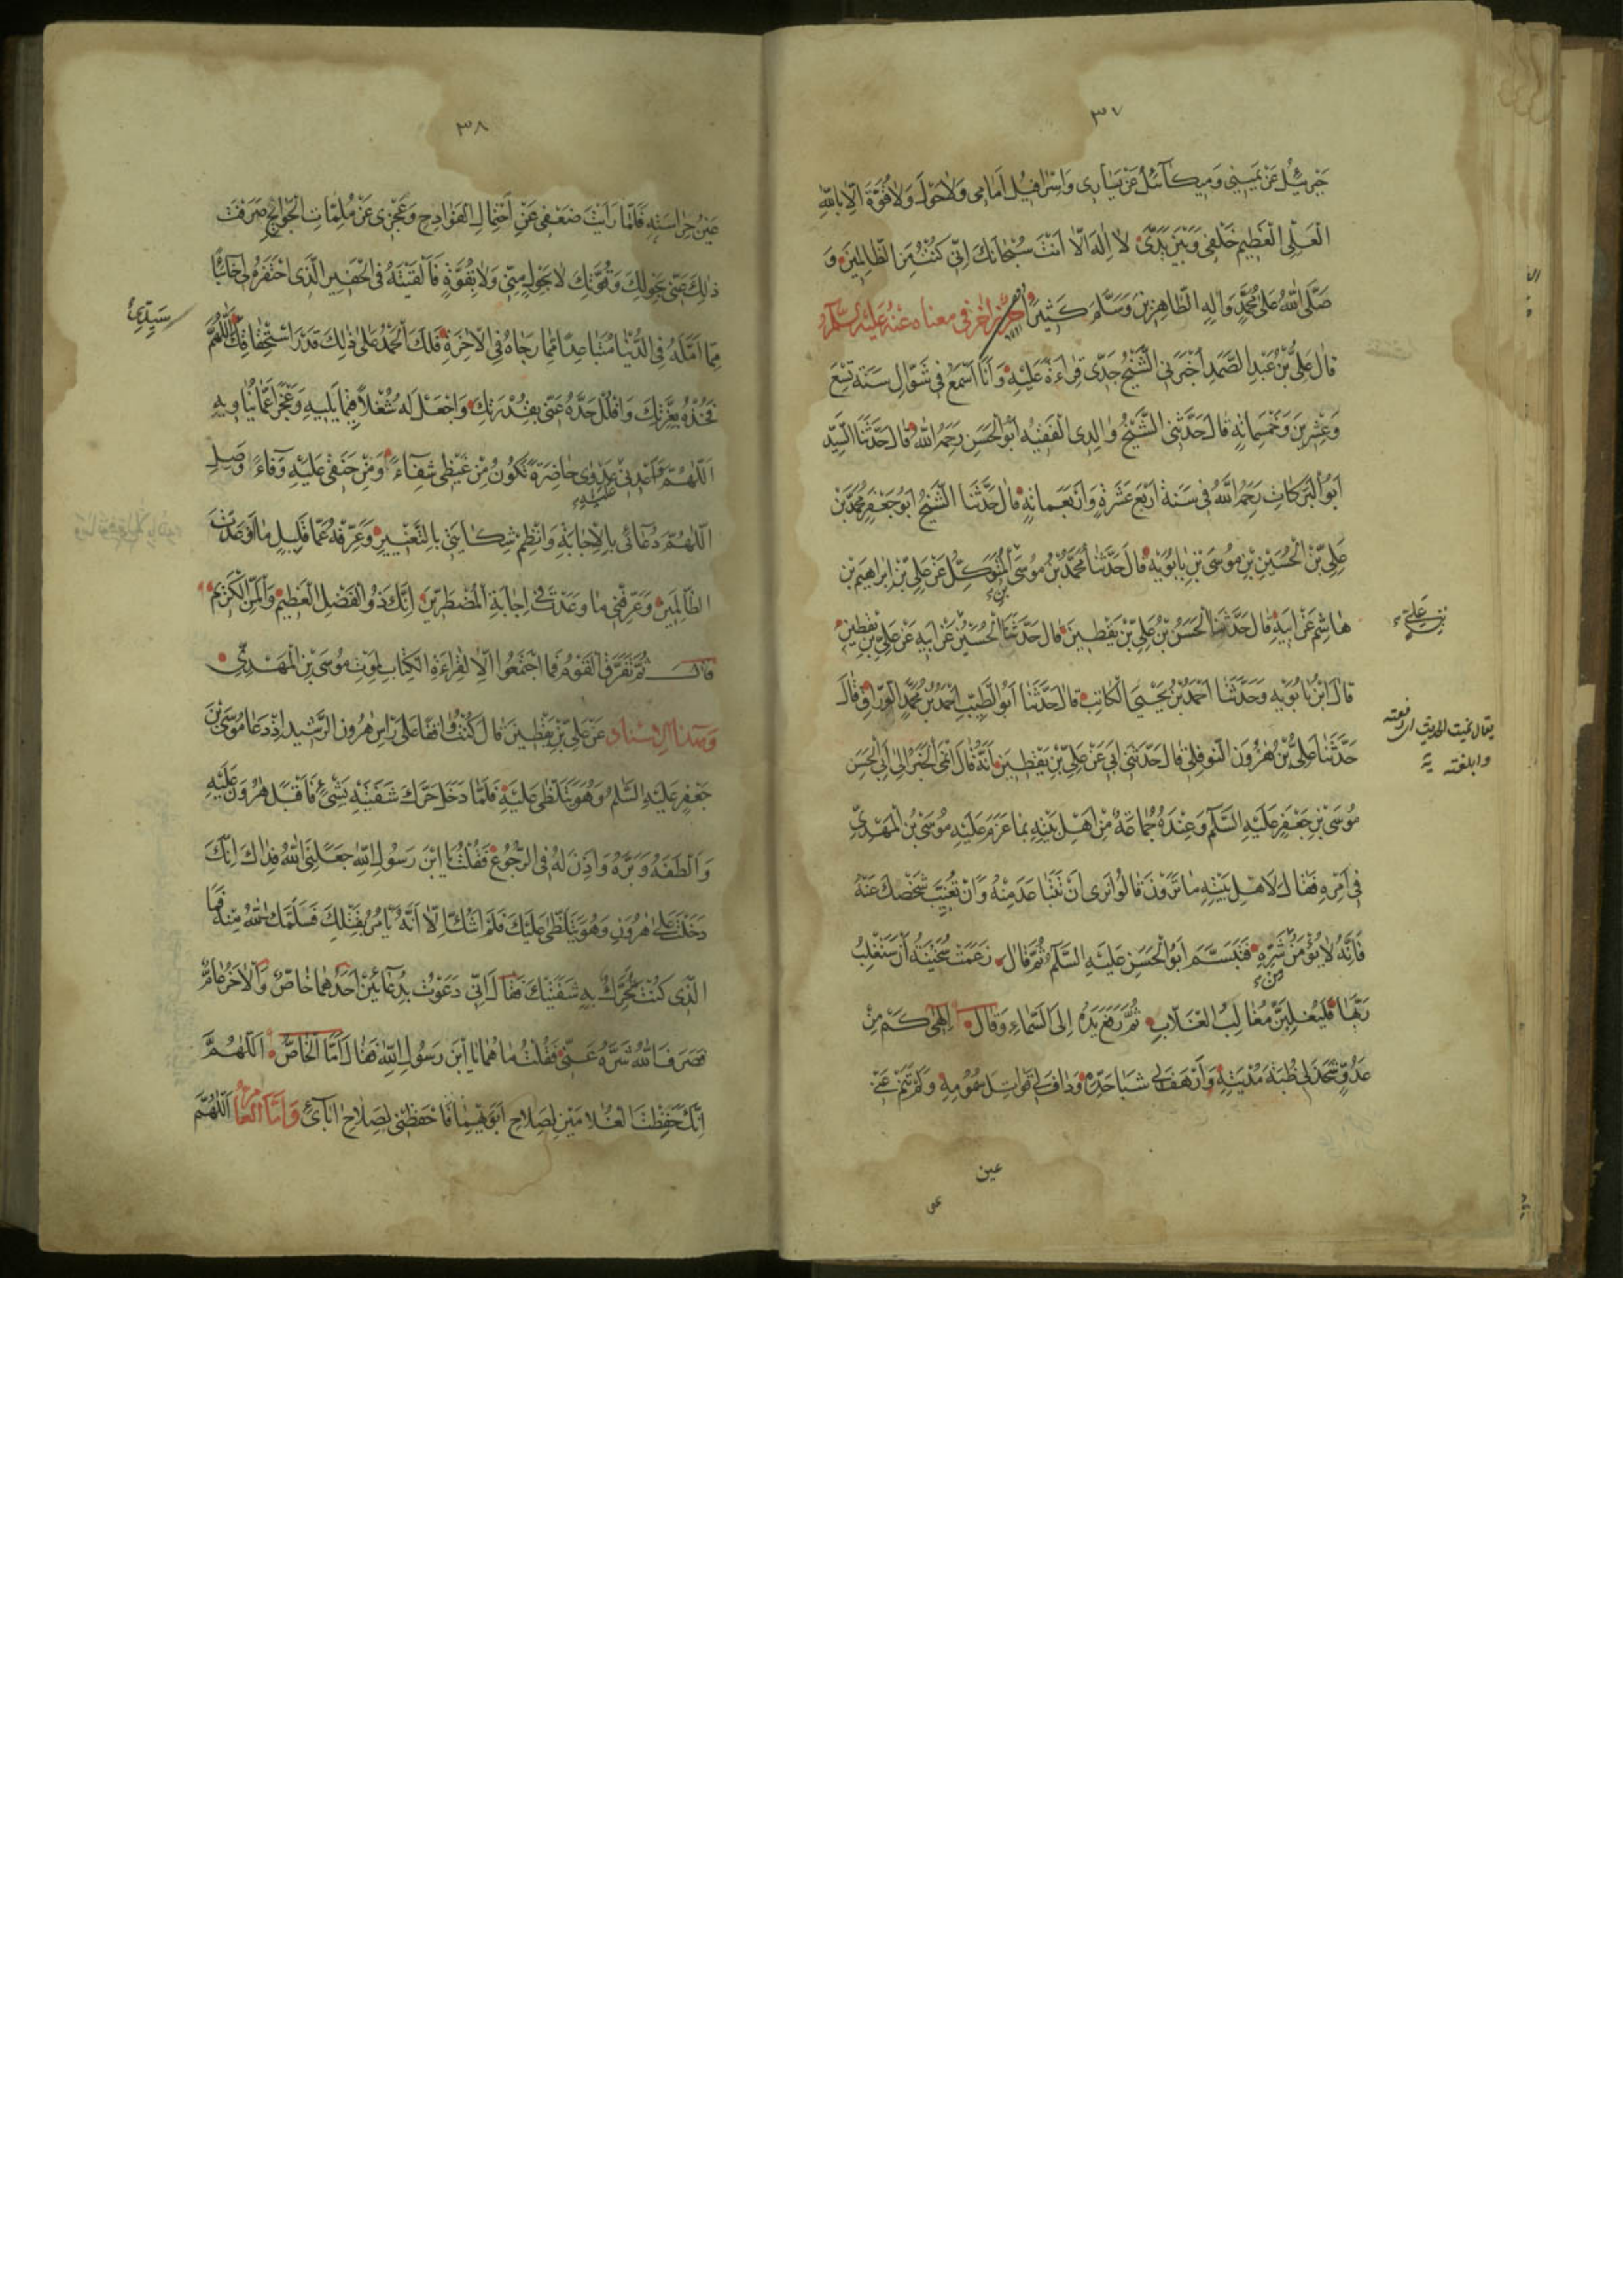 ٣٧
جبرئيل عن يميني وميكائيل عن يساري واسرافيل امامي ولا حول ولا قوة الا بالله
العلي العظيم خلفي وبين يدي لا اله الا انت سبحانك اني كنت من الظالمين و
صلى الله على محمد واله الطاهرين وسلم كثيرا حرز اخر في معناه عنه عليه السلم
قال علي بن عبد الصمد اخبرني الشيخ جدي قراءة عليه وانا اسمع في شوال سنة تسع
وعشرين وخمسمائة قال حدثني الشيخ والدي الفقيه ابو الحسن رحمه الله قال حدثنا السيد
ابو البركات رحمه الله في سنة اربع عشرة واربعمائة قال حدثنا الشيخ ابو جعفر محمد بن
علي بن الحسين بن موسى بن بابويه قال حدثنا محمد بن موسى بن المتوكل عن علي بن ابراهيم بن
هاشم عن ابيه قال حدثنا الحسن بن علي بن يقطين قال حدثنا الحسين عن ابيه عن علي بن يقطين
بن علي
قال ابن بابويه وحدثنا احمد بن يحيى الكاتب قال حدثنا ابو الطيب احمد بن محمد الوراق قال
يقال نميت الحديث اذ رفعته
وابلغته
حدثنا علي بن هرون النوفلي قال حدثني ابي عن علي بن يقطين انه قال انمى الخبر الى ابي الحسن
موسى بن جعفر عليه السلم وعنده جماعة من اهل بيته بما عزم عليه موسى بن المهدي
في امره فقال لاهل بيته ما ترون قالوا نرى ان تتباعد منه وان تغيب شخصك عنه
فانه لا يؤمن شره فتبسم ابو الحسن عليه السلم ثم قال زعمت سخينة ان ستغلب
ربها فليغلبن مغالب الغلاب ثم رفع يده الى السماء وقال الهى كم من
عدو شحذ لي ظبة مديته وارهف لي شبا حده وداف لي قواتل سمومه ولم تنم عني
عين
٣٨
عين حراسته فلما رايت ضعفي عن احتمال الفوادح وعجزي عن ملمات الجوائح صرفت
ذلك عني بحولك وقوتك لا بحول مني ولا بقوة فالقيته في الحفير الذي احتفره لي خائبا
مما امله في الدنيا متباعدا مما رجاه في الاخرة فلك الحمد على ذلك قدر استحقاقك اللهم
سيدي
فخذه بعزتك وافلل حده عني بقدرتك واجعل له شغلا فيما يليه وعجزا عما يناويه
اللهم واعدني عليه عدوى حاضرة تكون من غيظي شفاء ومن حنقي عليه وفاء وصل
اللهم دعائي بالاجابة وانظم شكايتي بالتغيير وعرفه عما قليل ما اوعدت
الظالمين وعرفني ما وعدت في اجابة المضطرين انك ذو الفضل العظيم والمن الكريم
قال ثم تفرق القوم فما اجتمعوا الا لقراءة الكتاب بموت موسى بن المهدي
وبهذا الاسناد عن علي بن يقطين قال كنت واقفا على راس هرون الرشيد اذ دعا موسى بن
جعفر عليه السلم وهو يتلظى عليه فلما دخل حرك شفتيه بشئ فاقبل هرون عليه
والطفه وبره واذن له في الرجوع فقلت يا ابن رسول الله جعلني الله فداك انك
دخلت على هرون وهو يتلظى عليك فلم اشك الا انه يامر بقتلك فسلمك الله منه فما
الذي كنت تحرك به شفتيك فقال اني دعوت بدعائين احدهما خاص والاخر عام
فصرف الله شره عني فقلت ما هما يا ابن رسول الله فقال اما الخاص اللهم
انك حفظت الغلامين لصلاح ابويهما فاحفظني لصلاح ابائي واما العام اللهم